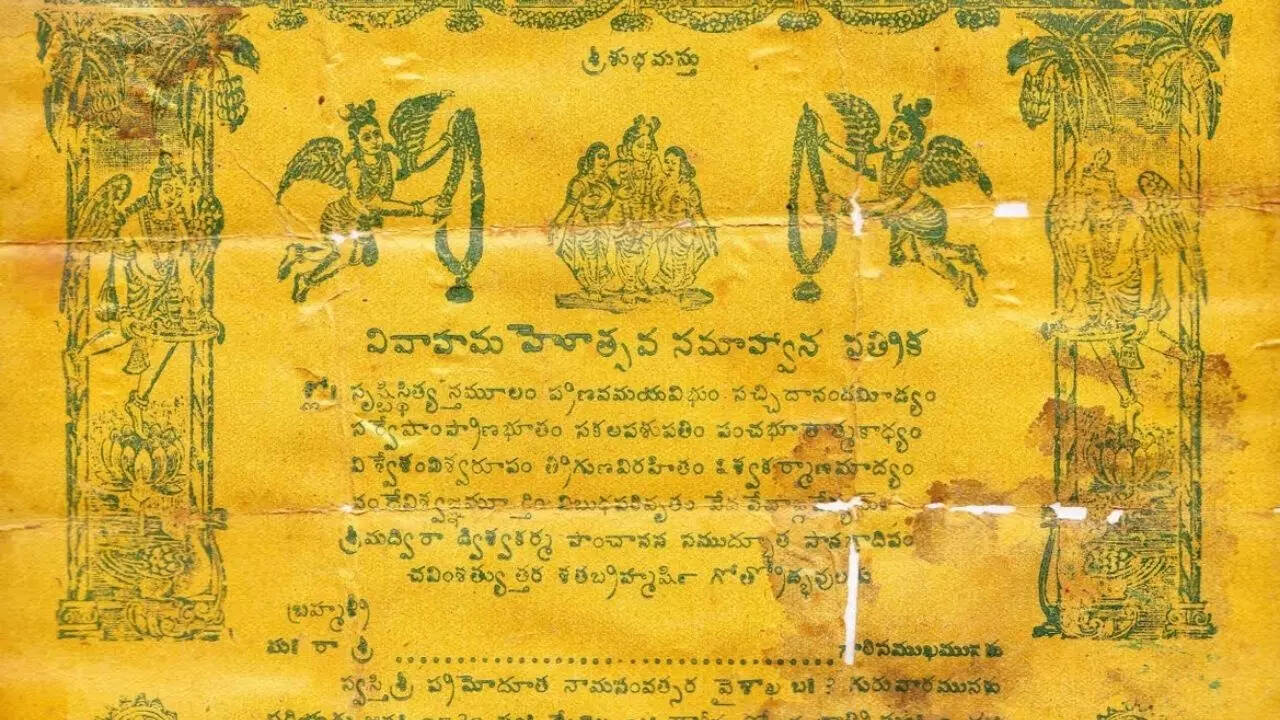 శ్రీశుభమస్తు
వివాహమహోత్సవ సమాహ్వాన పత్రిక
శ్లో॥ సృష్టిస్థిత్యన్తమూలం ప్రణవమయవిభుం సచ్చిదానందమీడ్యం
సర్వేషాంప్రాణభూతం సకలపశుపతిం పంచభూతాత్మకాధ్యం
విశ్వేశంవిశ్వరూపం త్రిగుణవిరహితం విశ్వకర్మాణమాద్యం
శ్రీమద్విరా డ్విశ్వకర్మ పాంచానన సముద్భూత
చవింశత్యుత్తర శతబ్రహ్మర్షి గోత్రోద్భవులకు
బ్రహ్మశ్రీ
మ॥ రా శ్రీ ........................................ గారిసముఖమునకు
స్వస్తిశ్రీ ప్రమోదూత నామసంవత్సర వైశాఖ గురువారమునకు